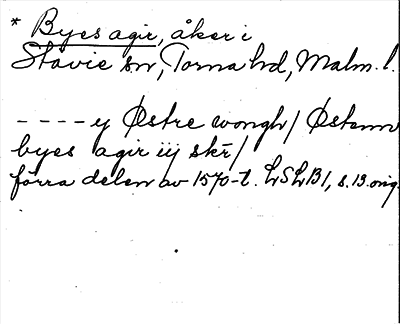 * Byes agir, åker i
Stävie sn, Torna hd, Malm. l.
- - - - y Østre wongh/ Østenn
byes agir iij skr/
förra delen av 1570-t. LSLB1, s. 13. orig.